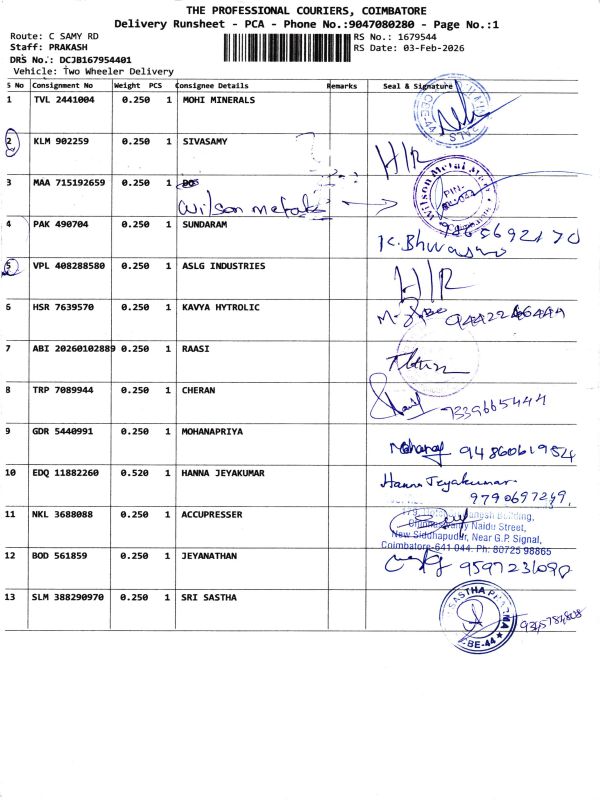 THE PROFESSIONAL COURIERS, COIMBATORE
Delivery Runsheet - PCA - Phone No.:9047080280 - Page No.:1
Route: C SAMY RD
RS No.: 1679544
Staff: PRAKASH
RS Date: 03-Feb-2026
DRS No.: DCJB167954401
Vehicle: Two Wheeler Delivery
S No Consignment No Weight PCS Consignee Details Remarks Seal & Signature
1 TVL 2441004 0.250 1 MOHI MINERALS
CBE-44
2 KLM 902259 0.250 1 SIVASAMY H/R
3 MAA 715192659 0.250 1 DOS
Wilson metals
Wilson Metal
4 PAK 490704 0.250 1 SUNDARAM
5 VPL 408288580 0.250 1 ASLG INDUSTRIES H/R
6 HSR 7639570 0.250 1 KAVYA HYTROLIC
7 ABI 20260102889 0.250 1 RAASI
8 TRP 7089944 0.250 1 CHERAN 7339665444
9 GDR 5440991 0.250 1 MOHANAPRIYA 9486061954
10 EDQ 11882260 0.520 1 HANNA JEYAKUMAR Hanna Jeyakumar
9790697249
11 NKL 3688088 0.250 1 ACCUPRESSER
Building,
Naidu Street,
New Siddhapudur, Near G.P. Signal,
Coimbatore-641 044. Ph: 80725 98865
12 BOD 561859 0.250 1 JEYANATHAN
13 SLM 388290970 0.250 1 SRI SASTHA
SASTHA PHARMA
CBE-44